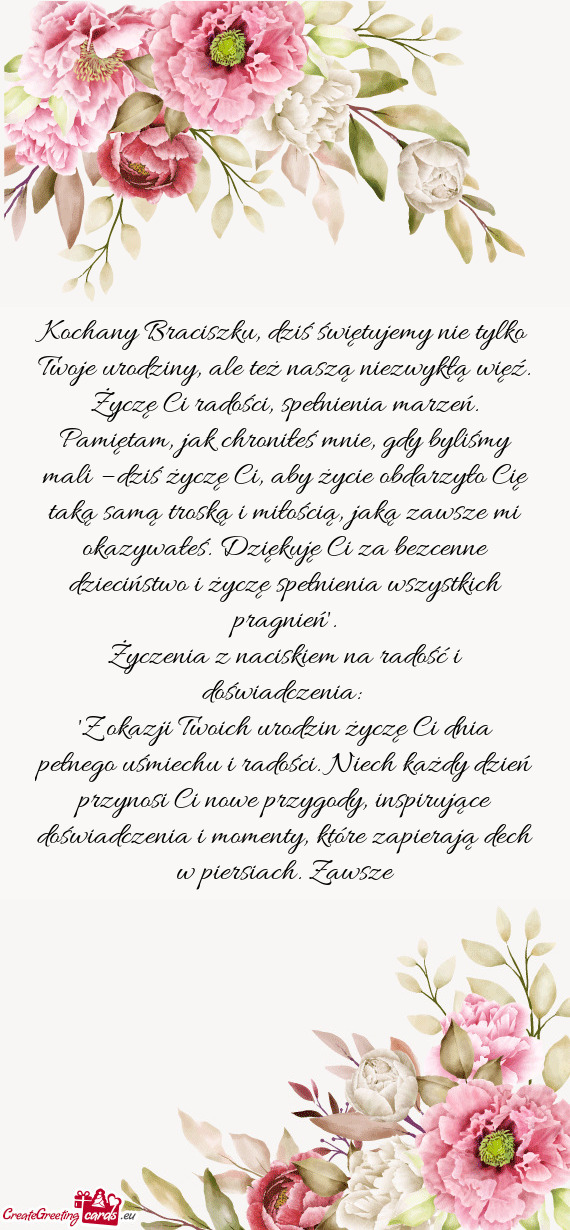 Kochany Braciszku, dziś świętujemy nie tylko
Twoje urodziny, ale też naszą niezwykłą więź.
Życzę Ci radości, spełnienia marzeń.
Pamiętam, jak chroniłeś mnie, gdy byliśmy
mali – dziś życzę Ci, aby życie obdarzyło Cię
taką samą troską i miłością, jaką zawsze mi
okazywałeś. Dziękuję Ci za bezcenne
dzieciństwo i życzę spełnienia wszystkich
pragnień".
Życzenia z naciskiem na radość i
doświadczenia:
"Z okazji Twoich urodzin życzę Ci dnia
pełnego uśmiechu i radości. Niech każdy dzień
przynosi Ci nowe przygody, inspirujące
doświadczenia i momenty, które zapierają dech
w piersiach. Zawsze
CreateGreeting cards .eu